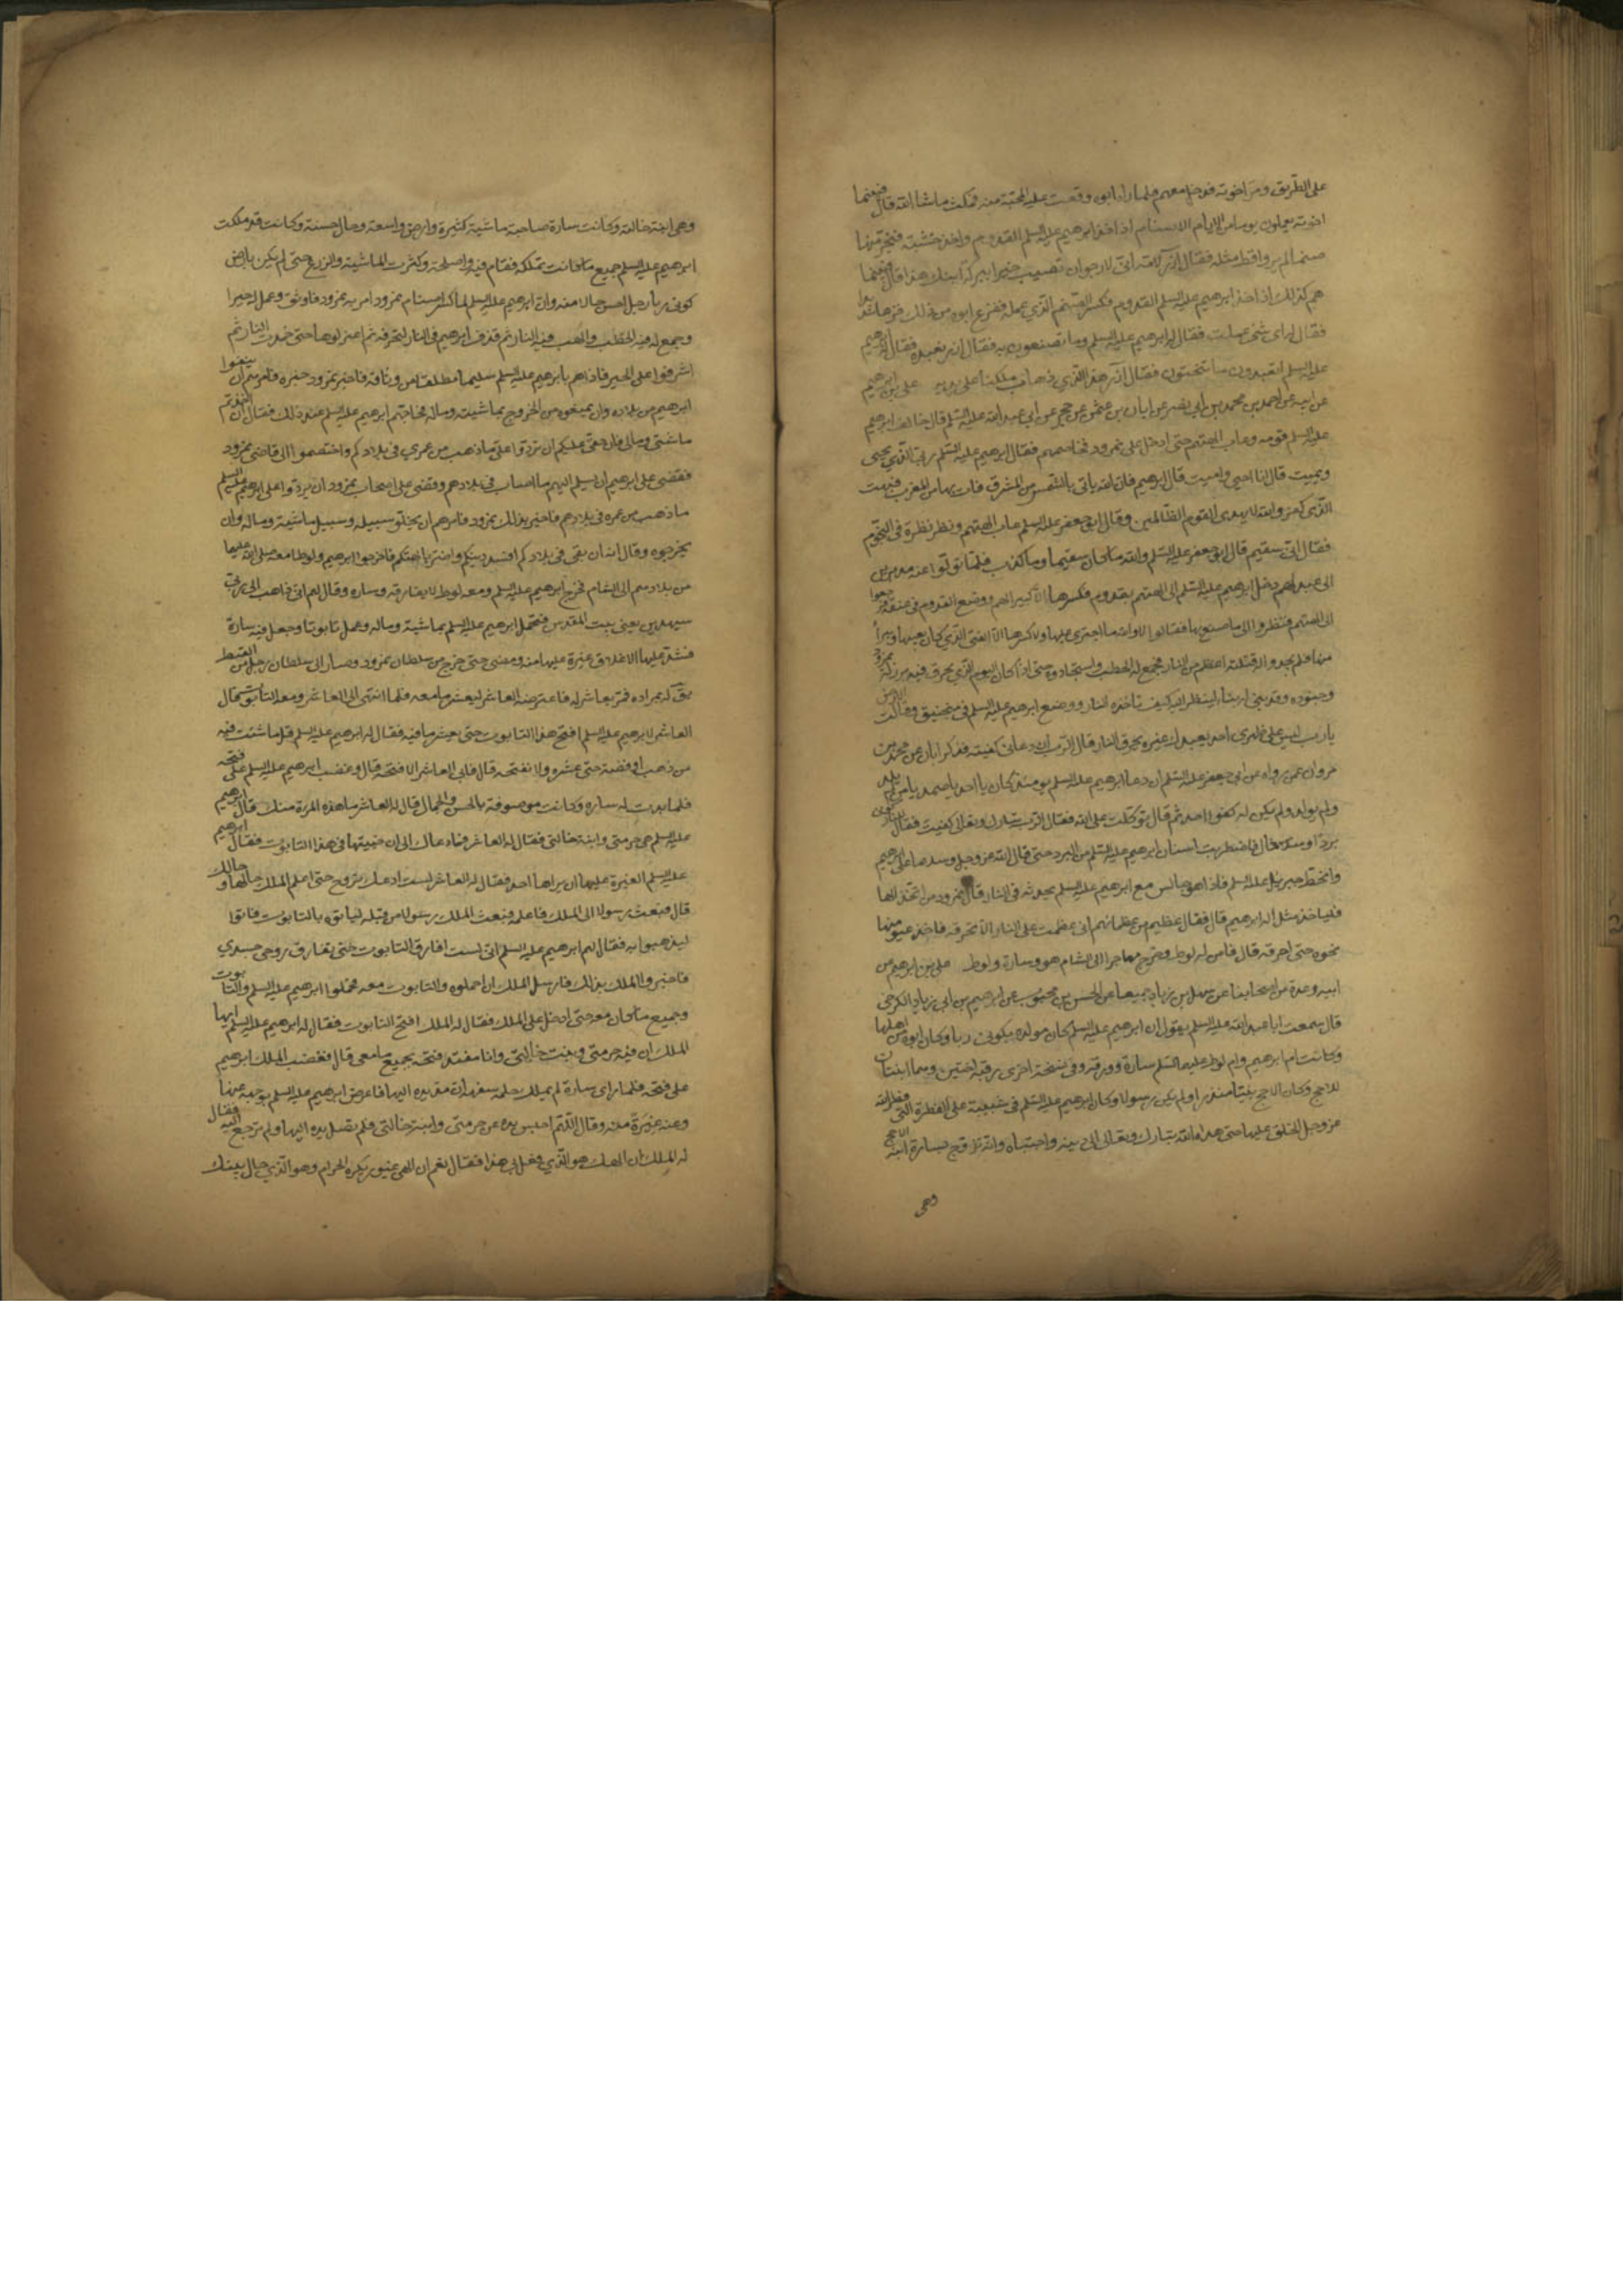 على الطريق ومر اخوته فدخل معهم فلما راه ابوه وقعت عليه المحبة منه فمكث ما شا الله قال فبينما
اخوته يعملون يوما من الايام الاصنام اذ اخذ ابرهيم عليه السلم القدوم واخذ خشبة فنجر منها
صنما لم يروا قط مثله فقال ازر لامه انى لارجوان نصيب خيرا ببركة ابنك هذا قال فبينما
هم كذلك اذ اخذ ابرهيم عليه السلم القدوم فكسر الصنم الذي عمله ففزع ابوه من ذلك فزعا شديدا
فقال له اى شئ عملت فقال له ابرهيم عليه السلم وما تصنعون به فقال ازر نعبده فقال له ابرهيم
عليه السلم اتعبدون ما تنحتون فقال ازر هذا الذي ذهاب ملكنا على يديه على بن ابرهيم
عن ابيه عن احمد بن محمد بن ابي نصر عن ابان بن عثمن عن حجر عن ابي عبد الله عليه السلم قال خالف ابرهيم
عليه السلم قومه وعاب الهتهم حتى ادخل على نمرود فخاصمهم فقال ابرهيم عليه السلم ربي الذي يحيى
ويميت قال انا احيي واميت قال ابرهيم فان الله ياتى بالشمس من المشرق فات بها من المغرب فبهت
الذى كفر والله لا يهدى القوم الظالمين وقال ابو جعفر عليه السلم عاب الهتهم ونظر نظرة فى النجوم
فقال انى سقيم قال ابو جعفر عليه السلم والله ما كان سقيما وما كذب فلما تولوا عنه مدبرين
الى عيد لهم دخل ابرهيم عليه السلم الى الهتهم بقدوم فكسرها الا كبيرا لهم ووضع القدوم فى عنقه فرجعوا
الى الهتهم فنظروا الى ما صنع بها فقالوا لا والله ما اجترى عليها ولا كسرها الا الفتى الذي كان يعيبها ويبرأ
منها فلم يجدوا له قتلة اعظم من النار فجمع له الحطب واستجادوه حتى اذا كان اليوم الذي يحرق فيه برز له نمرود
وجنوده وقد بنى له بناء لينظر اليه كيف تاخذه النار ووضع ابرهيم عليه السلم فى منجنيق وقالت الارض
يا رب ليس على ظهرى احد يعبدك غيره يحرق بالنار قال الرب ان دعانى كفيته فذكر ابان عن محمد بن
مروان عمن رواه عن ابي جعفر عليه السلم ان دعا ابرهيم عليه السلم يومئذ كان يا احد يا صمد يا من لم يلد
ولم يولد ولم يكن له كفوا احد ثم قال توكلت على الله فقال الرب تبارك وتعالى كفيت فقال للنار كونى
بردا قال فاضطربت اسنان ابرهيم عليه السلم من البرد حتى قال الله عز وجل وسلاما على ابرهيم
وانحط جبرئيل عليه السلم فاذا هو جالس مع ابرهيم عليه السلم يحدثه فى النار قال نمرود من اتخذ الها
فليتخذ مثل اله ابرهيم قال فقال عظيم من عظمائهم انى عزمت على النار الا تحرقه فاخذ عنق منها
نحوه حتى احرقه قال فامن له لوط وخرج مهاجرا الى الشام هو وسارة ولوط على بن ابرهيم عن
ابيه وعدة من اصحابنا عن سهل بن زياد جميعا عن الحسن بن محبوب عن ابرهيم بن ابى زياد الكرخى
قال سمعت ابا عبد الله عليه السلم يقول ان ابرهيم عليه السلم كان مولده بكوثى ربا وكان ابوه من اهلها
وكانت ام ابرهيم وام لوط عليهما السلم سارة وورقه وفى نسخة اخرى رقية اختين وهما ابنتان
للاحج وكان اللاحج نبيا منذرا ولم يكن رسولا وكان ابرهيم عليه السلم فى شبيبته على الفطرة التى فطر الله
عز وجل الخلق عليها حتى هداه الله تبارك وتعالى الى دينه واجتباه وانه تزوج بسارة ابنة اللاحج
وهى
وهى ابنة خالته وكانت سارة صاحبة ماشية كثيرة وارض واسعة وحال حسنة وكانت قد ملكت
ابرهيم عليه السلم جميع ما كانت تملكه فقام فيه واصلحه وكثرت الماشية والزرع حتى لم يكن بارض
كوثى ربا رجل احسن حالا منه وان ابرهيم عليه السلم لما كسر اصنام نمرود امر به نمرود فاوثق وعمل له حيرا
وجمع له فيه الحطب والهب فيه النار ثم قذف ابرهيم فى النار لتحرقه ثم اعتزلوها حتى خمدت النار ثم
اشرفوا على الحير فاذا هم بابرهيم عليه السلم سليما مطلقا من وثاقه فاخبر نمرود خبره فامرهم ان ينفوا
ابرهيم من بلاده وان يمنعوه من الخروج بماشيته وماله فحاجهم ابرهيم عليه السلم عند ذلك فقال ان اخذتم
ماشيتى ومالى فان حقى عليكم ان تردوا على ما ذهب من عمري فى بلادكم واختصموا الى قاضى نمرود
فقضى على ابرهيم ان يسلم اليهم ما اصاب فى بلادهم وقضى على اصحاب نمرود ان يردوا على ابرهيم عليه السلم
ما ذهب من عمره فى بلادهم فاخبر بذلك نمرود فامرهم ان يخلوا سبيله وسبيل ماشيته وماله وان
يخرجوه وقال انه ان بقى فى بلادكم افسد دينكم واضر بالهتكم فاخرجوا ابرهيم ولوطا معه صلى الله عليهما
من بلادهم الى الشام فخرج ابرهيم عليه السلم ومعه لوط لا يفارقه وساره وقال لهم انى ذاهب الى ربى
سيهدين يعنى بيت المقدس فتحمل ابرهيم عليه السلم بماشيته وماله وعمل تابوتا وجعل فيه سارة
وشد عليها الاغلاق غيرة عليها منه ومضى حتى خرج من سلطان نمرود وصار الى سلطان رجل من القبط
يقال له عراره فمر بعاشر له فاعترضه العاشر ليعشر ما معه فلما انتهى الى العاشر ومعه التابوت قال
العاشر لابرهيم عليه السلم افتح هذا التابوت حتى نعشر ما فيه فقال له ابرهيم عليه السلم قل ما شئت فيه
من ذهب او فضة حتى عشره ولا نفتحه قال فابى العاشر الا فتحه قال وغضب ابرهيم عليه السلم على فتحه
فلما بدت له ساره وكانت موصوفة بالحسن والجمال قال له العاشر ما هذه المرة منك قال ابرهيم
عليه السلم هى حرمتى وابنة خالتى فقال له العاشر فما دعاك الى ان خبيتها فى هذا التابوت فقال ابرهيم
عليه السلم الغيرة عليها ان يراها احد فقال له العاشر لست ادعك تبرح حتى اعلم الملك حالها وحالك
قال فبعث رسولا الى الملك فاعلمه فبعث الملك رسولا من قبله لياتوه بالتابوت فاتوا
ليذهبوا به فقال لهم ابرهيم عليه السلم انى لست افارق التابوت حتى تفارق روحى جسدي
فاخبروا الملك بذلك فارسل الملك ان احملوه والتابوت معه فحملوا ابرهيم عليه السلم والتابوت
وجميع ما كان معه حتى ادخل على الملك فقال له الملك افتح التابوت فقال له ابرهيم عليه السلم ايها
الملك ان فيه حرمتى وبنت خالتى وانا مفتد فتحه بجميع ما معى قال فغضب الملك ابرهيم
على فتحه فلما راى سارة لم يملك حلمه سفهه ان مد يده اليها فاعرض ابرهيم عليه السلم بوجهه عنها
وعنه غيرة منه وقال اللهم احبس يده عن حرمتى وابنة خالتى فلم تصل يده اليها ولم ترجع اليه فقال
له الملك ان الهك هو الذي فعل بى هذا فقال نعم ان الهى غيور يكره الحرام وهو الذي حال بينك